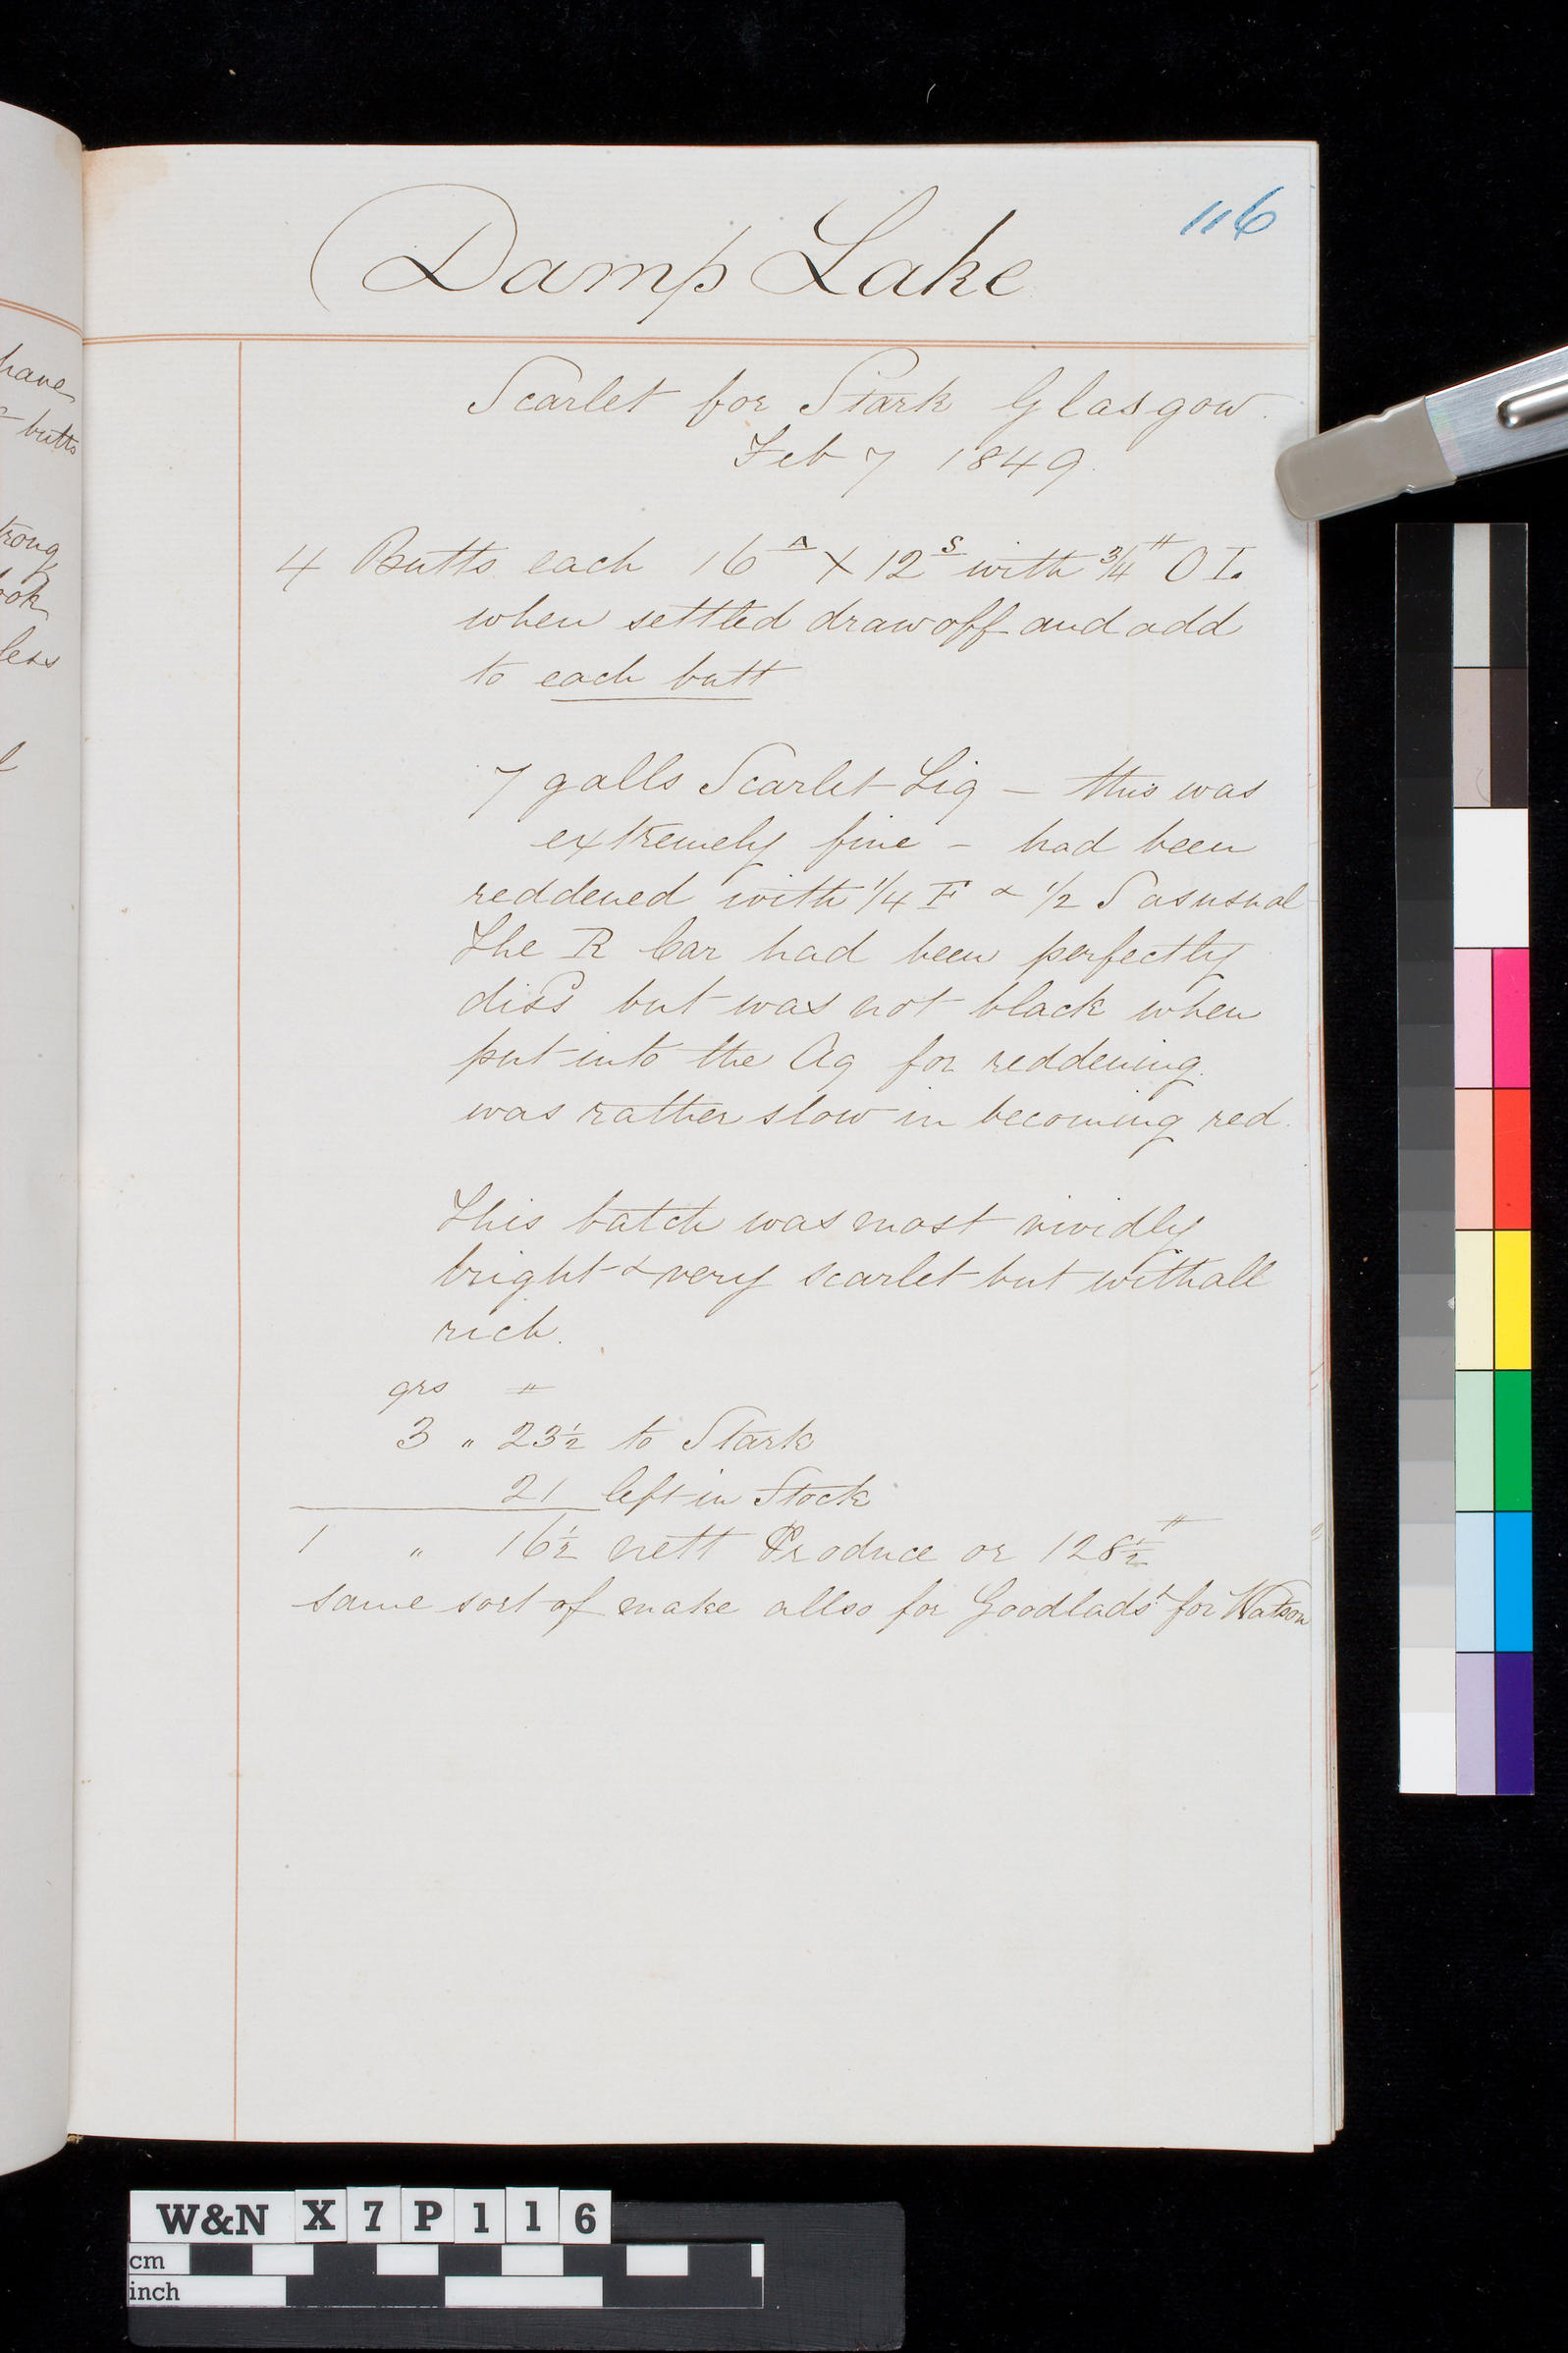 116
Damp Lake
Scarlet for Stark Glasgow.
Feb 7 1849.
4 Butts each 16 A × 12 S with 3/4 # O I.
when settled draw off and add
to each butt
7 galls Scarlet Liq – this was
extremely fine – had been
reddened with 1/4 F & 1/2 S as usual
The R Car had been perfectly
dissd but was not black when
put into the Aq for reddening.
was rather slow in becoming red.
This batch was most vividly
bright & very scarlet but withall
rich.
qrs #
3 " 23½ to Stark
21 left in Stock
1 " 16½ nett Produce or 128½ #
same sort of make allso for Goodlads & for Watson
have
butts
trong
ook
less
W&N X 7 P 1 1 6
cm
inch